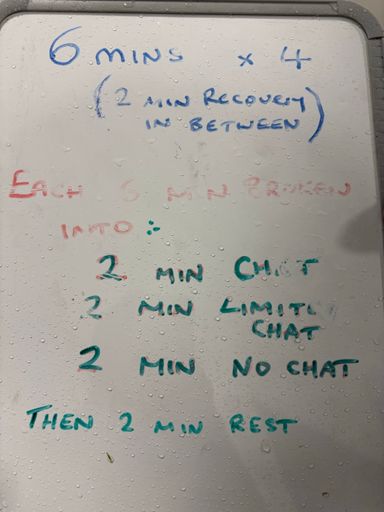 6 MINS x 4
(2 MIN RECOVERY
IN BETWEEN)
EACH 6 MIN BROKEN
INTO:-
2 MIN CHAT
2 MIN LIMITED
CHAT
2 MIN NO CHAT
THEN 2 MIN REST